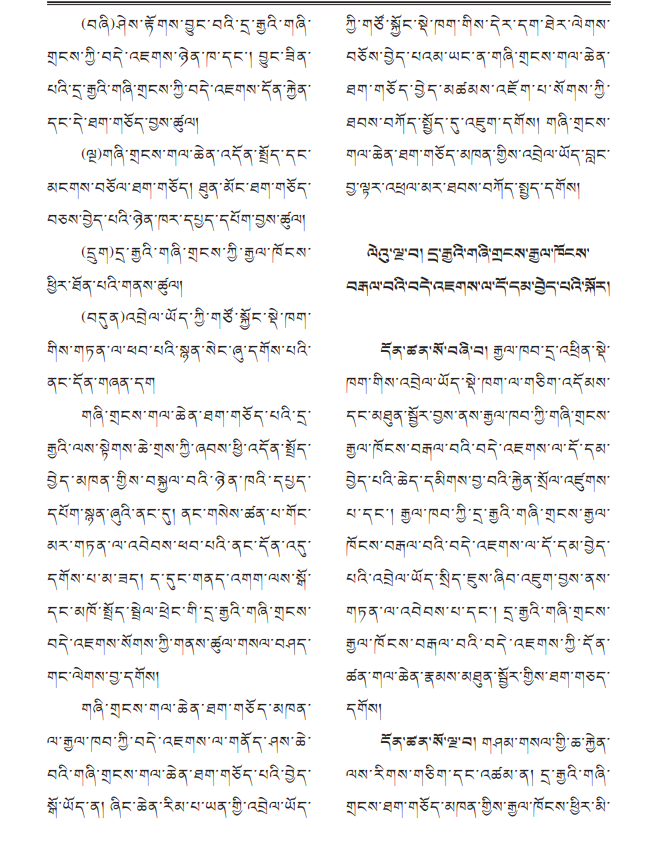 (བཞི)ཤེས་རྟོགས་བྱུང་བའི་དྲ་རྒྱའི་གཞི་
གྲངས་ཀྱི་བདེ་འཇགས་ཉེན་ཁ་དང་། བྱུང་ཟིན་
པའི་དྲ་རྒྱའི་གཞི་གྲངས་ཀྱི་བདེ་འཇགས་དོན་རྐྱེན་
དང་དེ་ཐག་གཅོད་བྱས་ཚུལ།
(ལྔ)གཞི་གྲངས་གལ་ཆེན་འདོན་སྤྲོད་དང་
མངགས་བཅོལ་ཐག་གཅོད། ཐུན་མོང་ཐག་གཅོད་
བཅས་བྱེད་པའི་ཉེན་ཁར་དཔྱད་དཔོག་བྱས་ཚུལ།
(དྲུག)དྲ་རྒྱའི་གཞི་གྲངས་ཀྱི་རྒྱལ་ཁོངས་
ཕྱིར་ཐོན་པའི་གནས་ཚུལ།
(བདུན)འབྲེལ་ཡོད་ཀྱི་གཙོ་སྐྱོང་སྡེ་ཁག་
གིས་གཏན་ལ་ཕབ་པའི་སྙན་སེང་ཞུ་དགོས་པའི་
ནང་དོན་གཞན་དག
གཞི་གྲངས་གལ་ཆེན་ཐག་གཅོད་པའི་དྲ་
རྒྱའི་ལས་སྟེགས་ཆེ་གྲས་ཀྱི་ཞབས་ཕྱི་འདོན་སྤྲོད་
བྱེད་མཁན་གྱིས་བསྐྱལ་བའི་ཉེན་ཁའི་དཔྱད་
དཔོག་སྙན་ཞུའི་ནང་དུ། ནང་གསེས་ཚན་པ་གོང་
མར་གཏན་ལ་འབེབས་ཕབ་པའི་ནང་དོན་འདུ་
དགོས་པ་མ་ཟད། ད་དུང་གནད་འགག་ལས་སྒོ་
དང་མཁོ་སྤྲོད་སྦྲེལ་ཕྲེང་གི་དྲ་རྒྱའི་གཞི་གྲངས་
བདེ་འཇགས་སོགས་ཀྱི་གནས་ཚུལ་གསལ་བཤད་
གང་ལེགས་བྱ་དགོས།
གཞི་གྲངས་གལ་ཆེན་ཐག་གཅོད་མཁན་
ལ་རྒྱལ་ཁབ་ཀྱི་བདེ་འཇགས་ལ་གནོད་ཤས་ཆེ་
བའི་གཞི་གྲངས་གལ་ཆེན་ཐག་གཅོད་པའི་བྱེད་
སྒོ་ཡོད་ན། ཞིང་ཆེན་རིམ་པ་ཡན་གྱི་འབྲེལ་ཡོད་
ཀྱི་གཙོ་སྐྱོང་སྡེ་ཁག་གིས་དེར་དག་ཐེར་ལེགས་
བཅོས་བྱེད་པའམ་ཡང་ན་གཞི་གྲངས་གལ་ཆེན་
ཐག་གཅོད་བྱེད་མཚམས་འཇོག་པ་སོགས་ཀྱི་
ཐབས་བཀོད་སྤྱོད་དུ་འཇུག་དགོས། གཞི་གྲངས་
གལ་ཆེན་ཐག་གཅོད་མཁན་གྱིས་འབྲེལ་ཡོད་བླང་
བྱ་ལྟར་འཕྲལ་མར་ཐབས་བཀོད་སྤྱད་དགོས།
ལེའུ་ལྔ་བ། དྲ་རྒྱའི་གཞི་གྲངས་རྒྱལ་ཁོངས་
བརྒལ་བའི་བདེ་འཇགས་ལ་དོ་དམ་བྱེད་པའི་སྐོར།
དོན་ཚན་སོ་བཞི་བ། རྒྱལ་ཁབ་དྲ་འཕྲིན་སྡེ་
ཁག་གིས་འབྲེལ་ཡོད་སྡེ་ཁག་ལ་གཅིག་འདོམས་
དང་མཐུན་སྦྱོར་བྱས་ནས་རྒྱལ་ཁབ་ཀྱི་གཞི་གྲངས་
རྒྱལ་ཁོངས་བརྒལ་བའི་བདེ་འཇགས་ལ་དོ་དམ་
བྱེད་པའི་ཆེད་དམིགས་བྱ་བའི་རྐྱེན་སྲོལ་འཛུགས་
པ་དང་། རྒྱལ་ཁབ་ཀྱི་དྲ་རྒྱའི་གཞི་གྲངས་རྒྱལ་
ཁོངས་བརྒལ་བའི་བདེ་འཇགས་ལ་དོ་དམ་བྱེད་
པའི་འབྲེལ་ཡོད་སྲིད་ཇུས་ཞིབ་འཇུག་བྱས་ནས་
གཏན་ལ་འབེབས་པ་དང་། དྲ་རྒྱའི་གཞི་གྲངས་
རྒྱལ་ཁོངས་བརྒལ་བའི་བདེ་འཇགས་ཀྱི་དོན་
ཚན་གལ་ཆེན་རྣམས་མཐུན་སྦྱོར་གྱིས་ཐག་གཅད་
དགོས།
དོན་ཚན་སོ་ལྔ་བ། གཤམ་གསལ་གྱི་ཆ་རྐྱེན་
ལས་རིགས་གཅིག་དང་འཚམ་ན། དྲ་རྒྱའི་གཞི་
གྲངས་ཐག་གཅོད་མཁན་གྱིས་རྒྱལ་ཁོངས་ཕྱིར་མི་